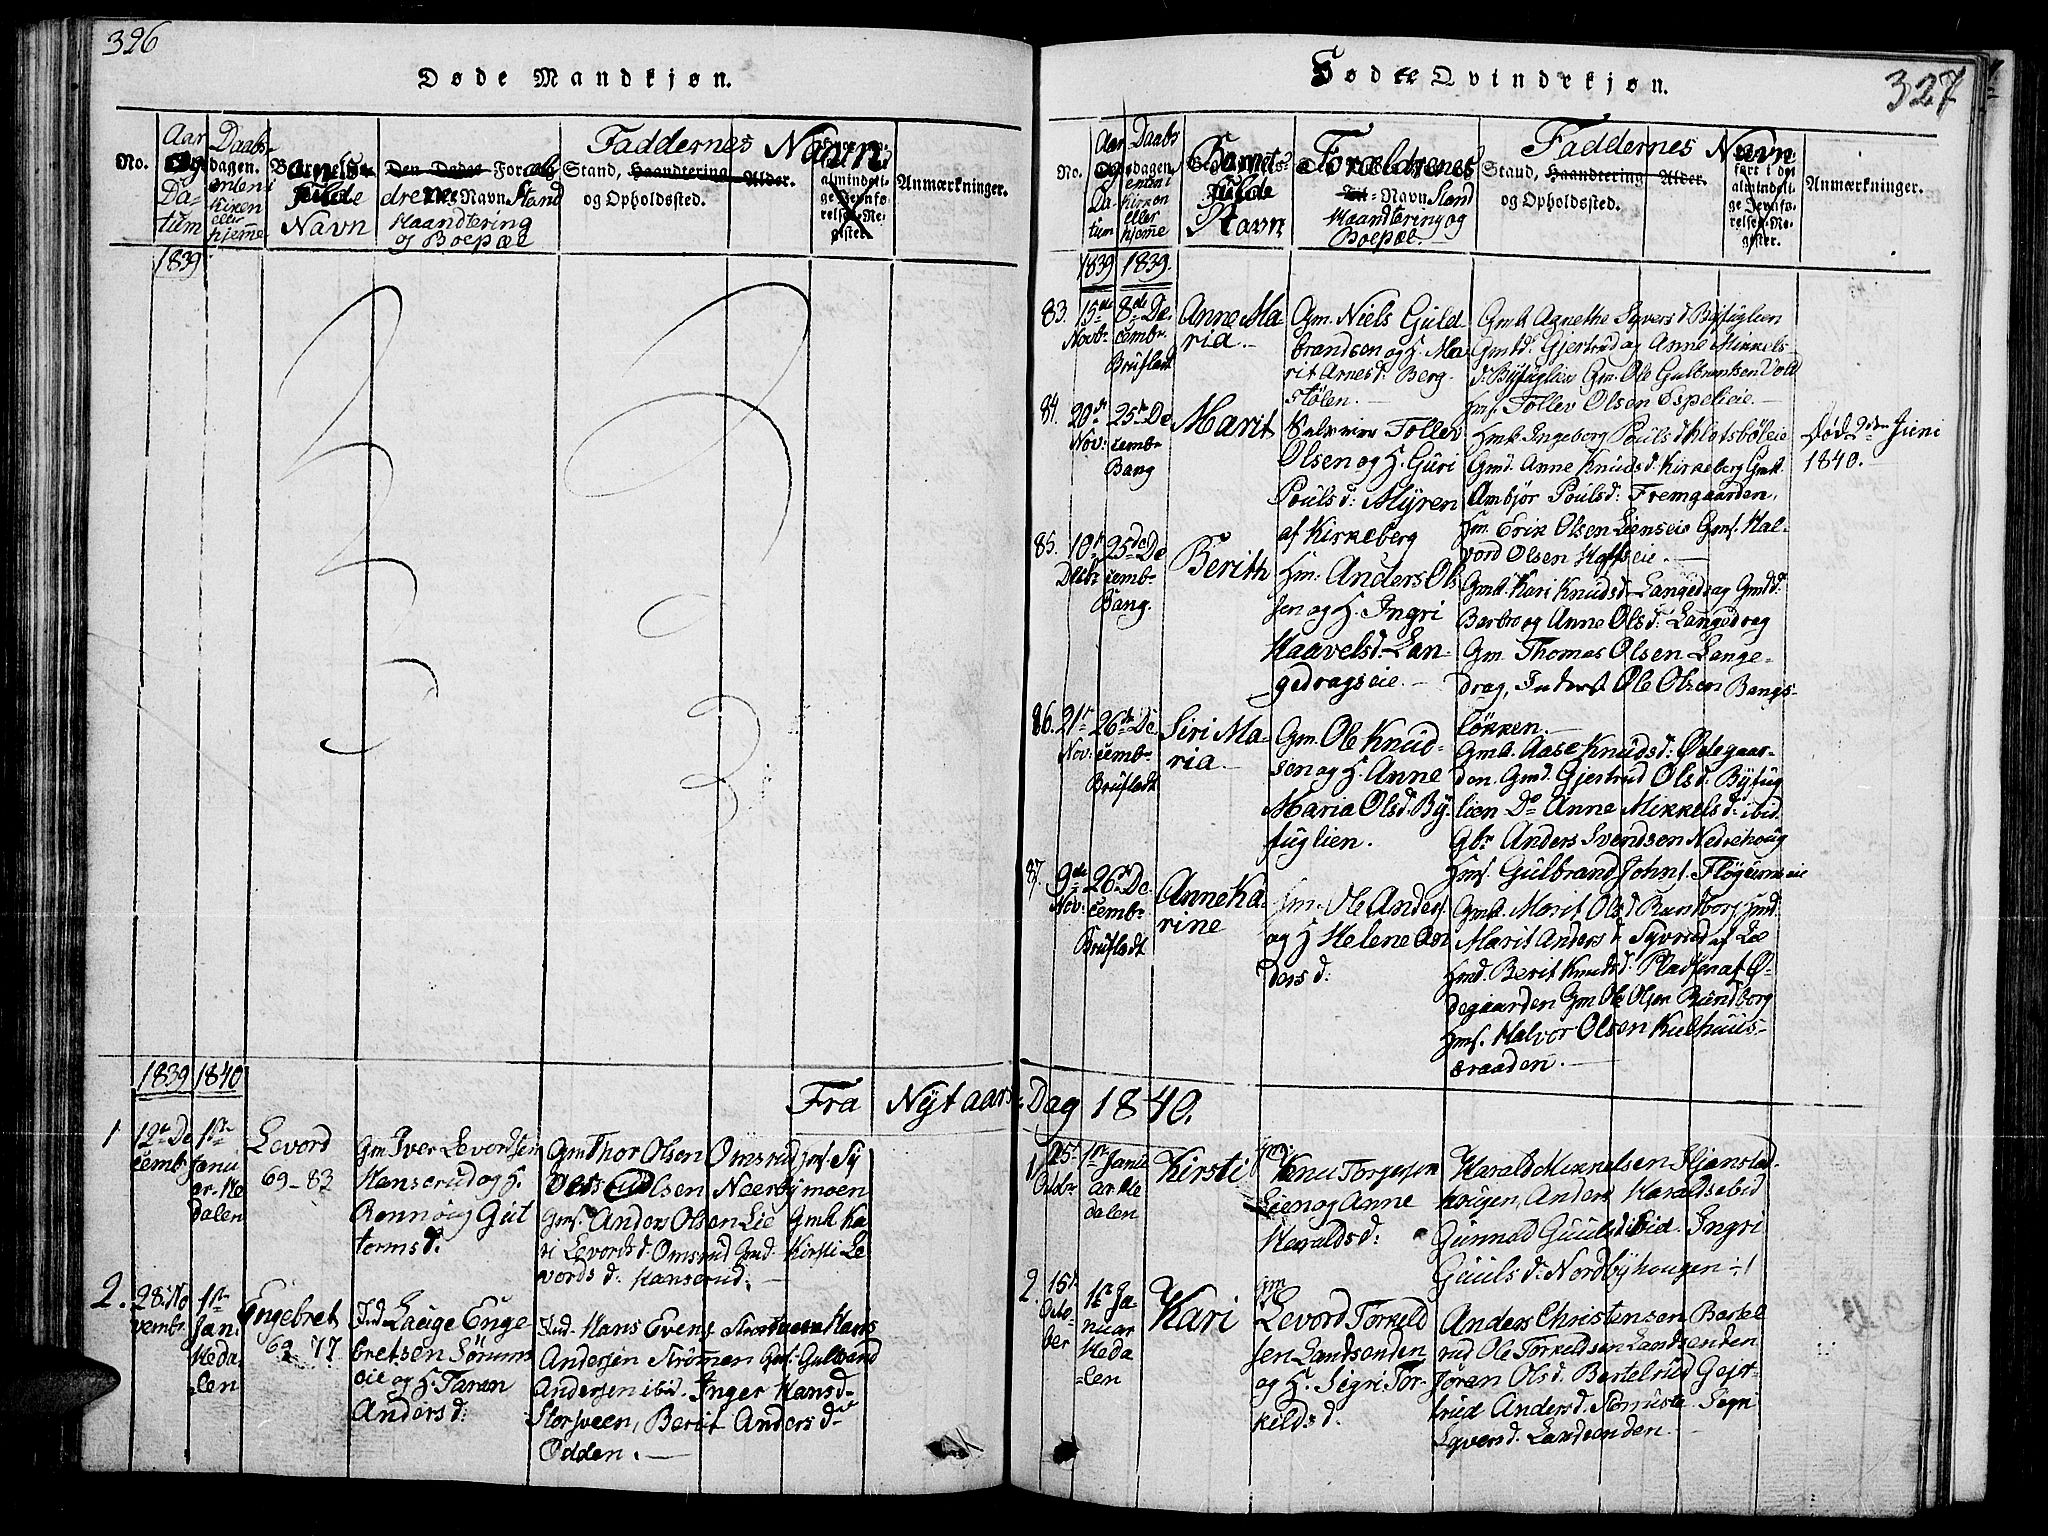 326
Døde Mandkjøn.
No.
Aar og Datum
Daabsdagen. enten i Kirken eller hjeme
Barnets fulde Navn
Den Dødes Forældrenes Navn Stand Haandtering og Boepæl
Faddernes Navn
Stand, Haandtering Alder.
og Opholdssted.
Anmærkninger.
1839
1839 1840
Fra Nytaars
1
12te De
cembr
1ste
Janu
ar He
dalen
Levord
69-83
Gm Iver Levordsen
Hanserud og H.
Rønnoug Gut
torms d.
Gm Thor Olsen Omsrud
Olsen Neerbymoen
Gms. Anders Olsen Lie Gmk Ka
ri Levords d. Omsrud Gmd. Kirsti Le
vords d. Hanserud.
2.
28. No
vembr.
1ste
Jan.
Heda
len
Engebret
69 77
Ind. Lauge Enge
bretsen Sørums
eie og H. Taran
Anders d.
Ind. Hans Evens. Hans
Andersen Strømen Gms. Gulbrand
Andersen ibid. Inger Hans d.
Storsveen, Berit Anders d.
Odden.
327
Fødte Qvindekjøn.
No.
Aar og Datum
Daabsdagen enten i Kirken eller hjeme
Barnets fulde Navn
Forældrenes Navn Stand Haandtering og Boepæl
Faddernes Navn
Stand, Haandtering Alder.
og Opholdssted.
ført i det almindelige Jevnførelses-Register.
Anmærkninger.
1839 1839.
83.
15de
Novbr.
8de De
cembr.
Brufladt
Anne Ma
ria.
Gm. Niels Guld
brandsen og H. Ma
rit Arnes d. Berg
stølen.
Gmk Agnethe Syvers d Byfuglien
Gmtd. Gjertrud og Anne Mikkels
d. Byfuglien Gm. Ole Gulbrandsen Vold
Hms. Tollev Olsen Espelieie
84.
20de
Nov:
25de De
cembr
Bang
Marit
Tollev
Olsen og H. Guri
Pouls d: Myren
af Kirkeberg
Hmk. Ingeborg Pouls d Klotsbøleie
Gmd. Anne Knuds d. Kirkeberg Gmk
Ambjør Pouls d: Fremgaarden,
Hm. Erik Olsen Lienseie Gms. Hal-
vord Olsen Hoffseie.
Død 2den Juni
1840.
85.
10de
Decbr
25de De
cembr
Bang.
Berith
Hm: Anders Ol
sen og H. Ingri
Haavels d. Lan-
gedragseie.
Gmk. Kari Knuds d. Langedrag Gmtd:
Barbro og Anne Ols d: Langedrag
Gm. Thomas Olsen Lange-
drag, Inderst Ole Olsen Bangs-
løkken.
86.
21de
Nov:
26de De
cembr
Brufladt
Siri Ma-
ria.
Gm. Ole Knud-
sen og H. Anne
Maria Ols d. By-
fuglien.
Gmk. Aase Knuds d: Ødegaar-
den. Gmd. Gjertrud Ols d. Byfug
lien Do Anne Mikkels d: ibid
Gbr. Anders Svendsen Nedrehoug
Hms. Gulbrand Johns.
87.
9de
Nov:
26de De
cembr
Brufladt
Anne Ka-
rine
Hm. Ole Anders.
og H Helene An
ders d:
Gmk. Marit Ols d Rundborg
Marit Anders d. Syverud af Lie
Hmd. Berit Knuds d. Pladsen af Ø-
degaarden Gm Ole Olsen Rundborg
Hms. Halvor Olsen Kulhuus-
braaden.
Dag 1840.
1
25.
Octbr
1ste Janu
ar He
dalen
Kirsti
Gm.
Knu Torgersen
Lien og Anne
Haralds d:
Harald Mikkelsen Hjønstad
hougen, Anders Haraldse bid
Gunnild Guuls d ibid. Ingri
Guuls d. Nordbyhougen
2.
15.
Octo-
ber
1ste Ja-
nuar
Heda
len
Kari
Gm
Levord Torkild
sen Landsenden
og H. Sigri Tor-
kilds d.
Anders Christensen Bertel
rud Ole Torkildsen Landsenden
Jøran Ols d. Bertelrud Gjert-
rud Anders d. Sigri
Syvers d. Landsenden.